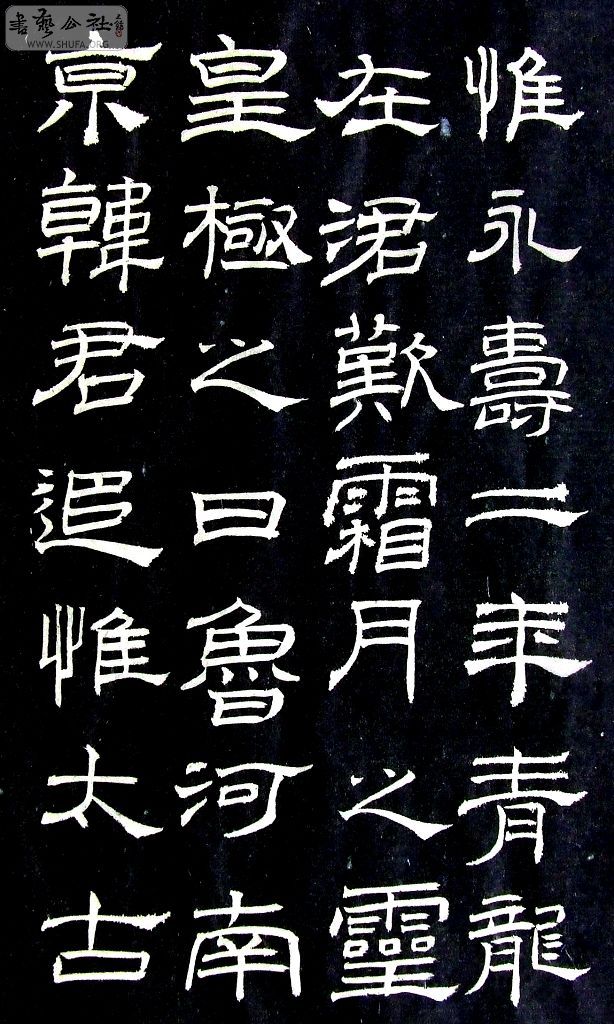 惟永壽二年青龍
在涒歎霜月之靈
皇極之日魯河南
京韓君追惟太古
書藝公社
WWW.SHUFA.ORG